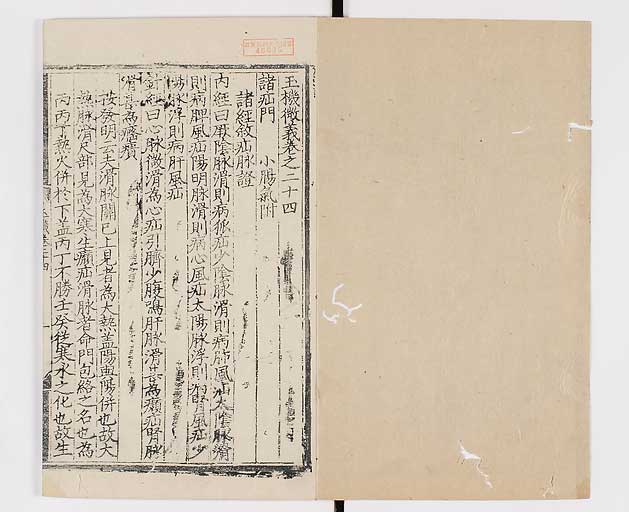 玉機微義卷之二十四
諸疝門　小腸氣附
諸經敘疝脉證
內經曰厥陰脉滑則病狐疝少陰脉滑則病肺風疝太陰脉滑
則病脾風疝陽明脉滑則病心風疝太陽脉滑則病腎風疝少
陽脉滑則病肝風疝
針經曰心脉微滑為心疝引臍少腹鳴肝脉滑甚為㿗疝腎脉
滑甚為癃㿗
按發明云夫滑脉關已上見者為大熱盖陽與陽併也故大
熱脉滑尺部見為大寒生㿗疝滑脉者命門包絡之名也為
丙丙丁熱火併於下盖丙丁不勝壬癸從寒水之化也故生